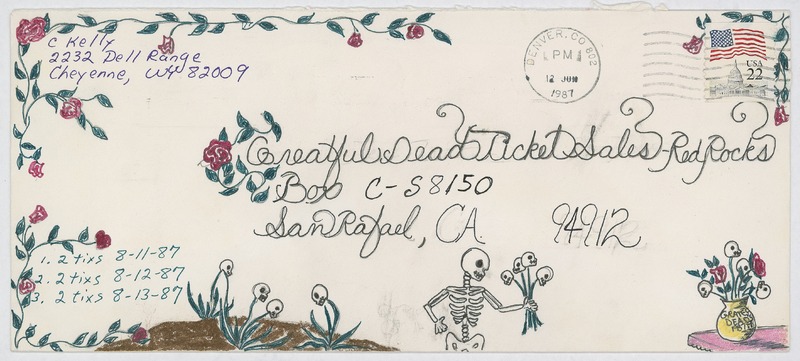 C Kelly
2232 Dell Range
Cheyenne, WY 82009
DENVER, CO 802
PM
12 JUN
1987
USA
22
Greatful Dead Ticket Sales - Red Rocks
Box C-S8150
San Rafael, CA. 94912
1. 2 tixs 8-11-87
2. 2 tixs 8-12-87
3. 2 tixs 8-13-87
GRATEFUL
DEAD